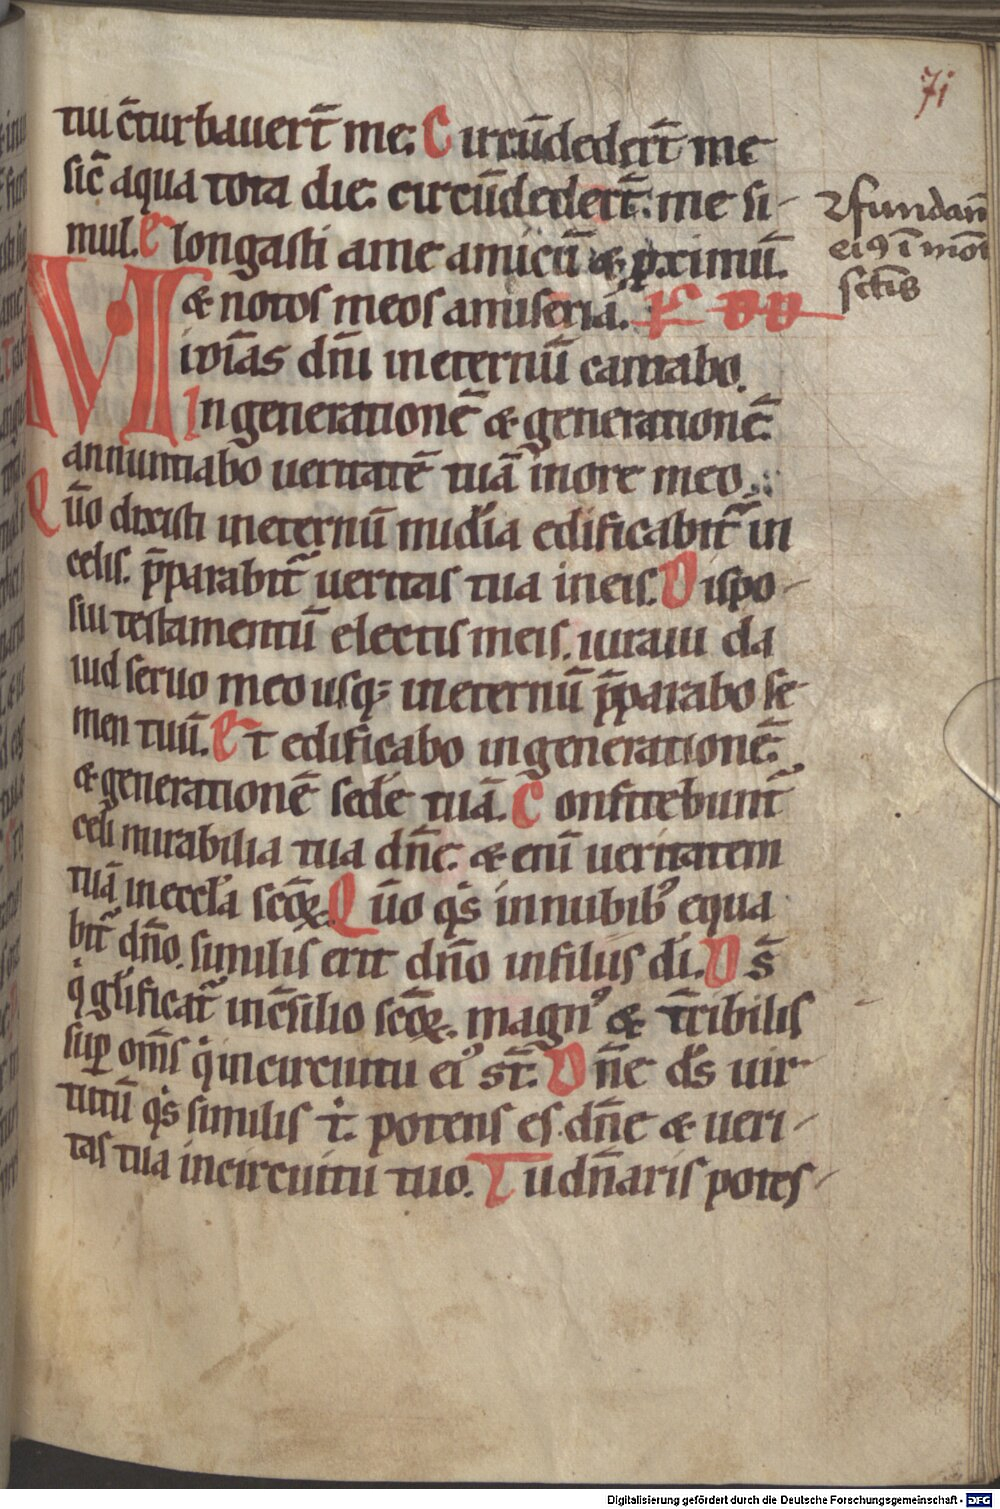 7i
tui c̄turbauer̄t me. Circūdeder̄t me
sic̄ aqua tota die. circūdeder̄t me si-
mul. Elongasti a me amicū & p̱ximū.
& notos meos a miseria.
Mi͞ias dn̄i in eternū cantabo.
In generationē & generationē
annuntiabo ueritatē tuā in ore meo.
Qūo dixisti in eternū mid̓ia edificabit᷑ in
celis. p̄parabit᷑ ueritas tua in eis. Dispo-
sui testamentū electis meis. iuraui da
uid seruo meo usq; in eternū p̄parabo se-
men tuū. Et edificabo in generationē
& generationē sedē tuā. Confitebunt᷑
celi mirabilia tua dn̄e. & eni͞ ueritatem
tuā in eccl̓a sc̄oꝝ. Qūo q̇s in nubibꝰ equa
bit᷑ dn̄o. similis erit dn̄o in filiis di͞. Ds̄
q̇ gl̓ificat᷑ in c̄silio sc̄oꝝ. magnꝰ & t̄ribilis
sup̱ om̄s q̇ in circuitu eiꝰ st̄. Dn̄e ds̄ uir-
tutū q̇s similis t̓. potens es dn̄e & ueri-
tas tua in circuitu tuo. Tu dn̄aris potes-
⁊ fundam̄
eiꝯ ī mōt
sctīs
Digitalisierung gefördert durch die Deutsche Forschungsgemeinschaft - DFG